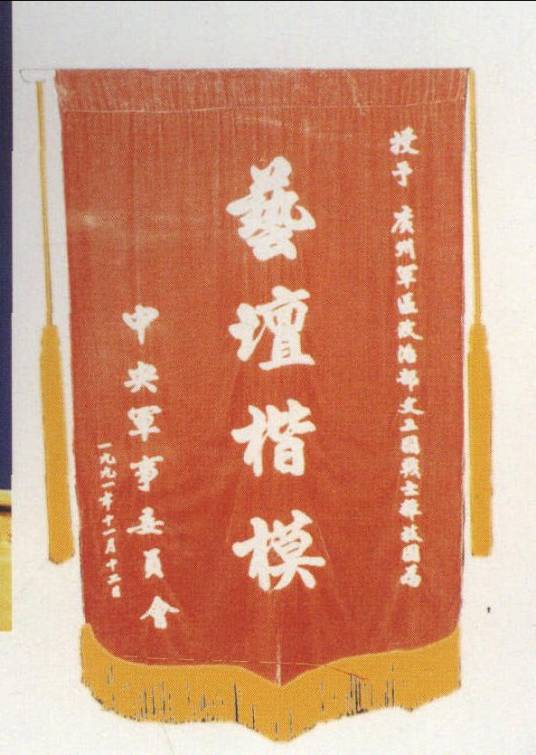 授予 广州军区政治部文工团战士杂技团为
藝壇楷模
中央軍事委員會
一九九一年十一月十二日